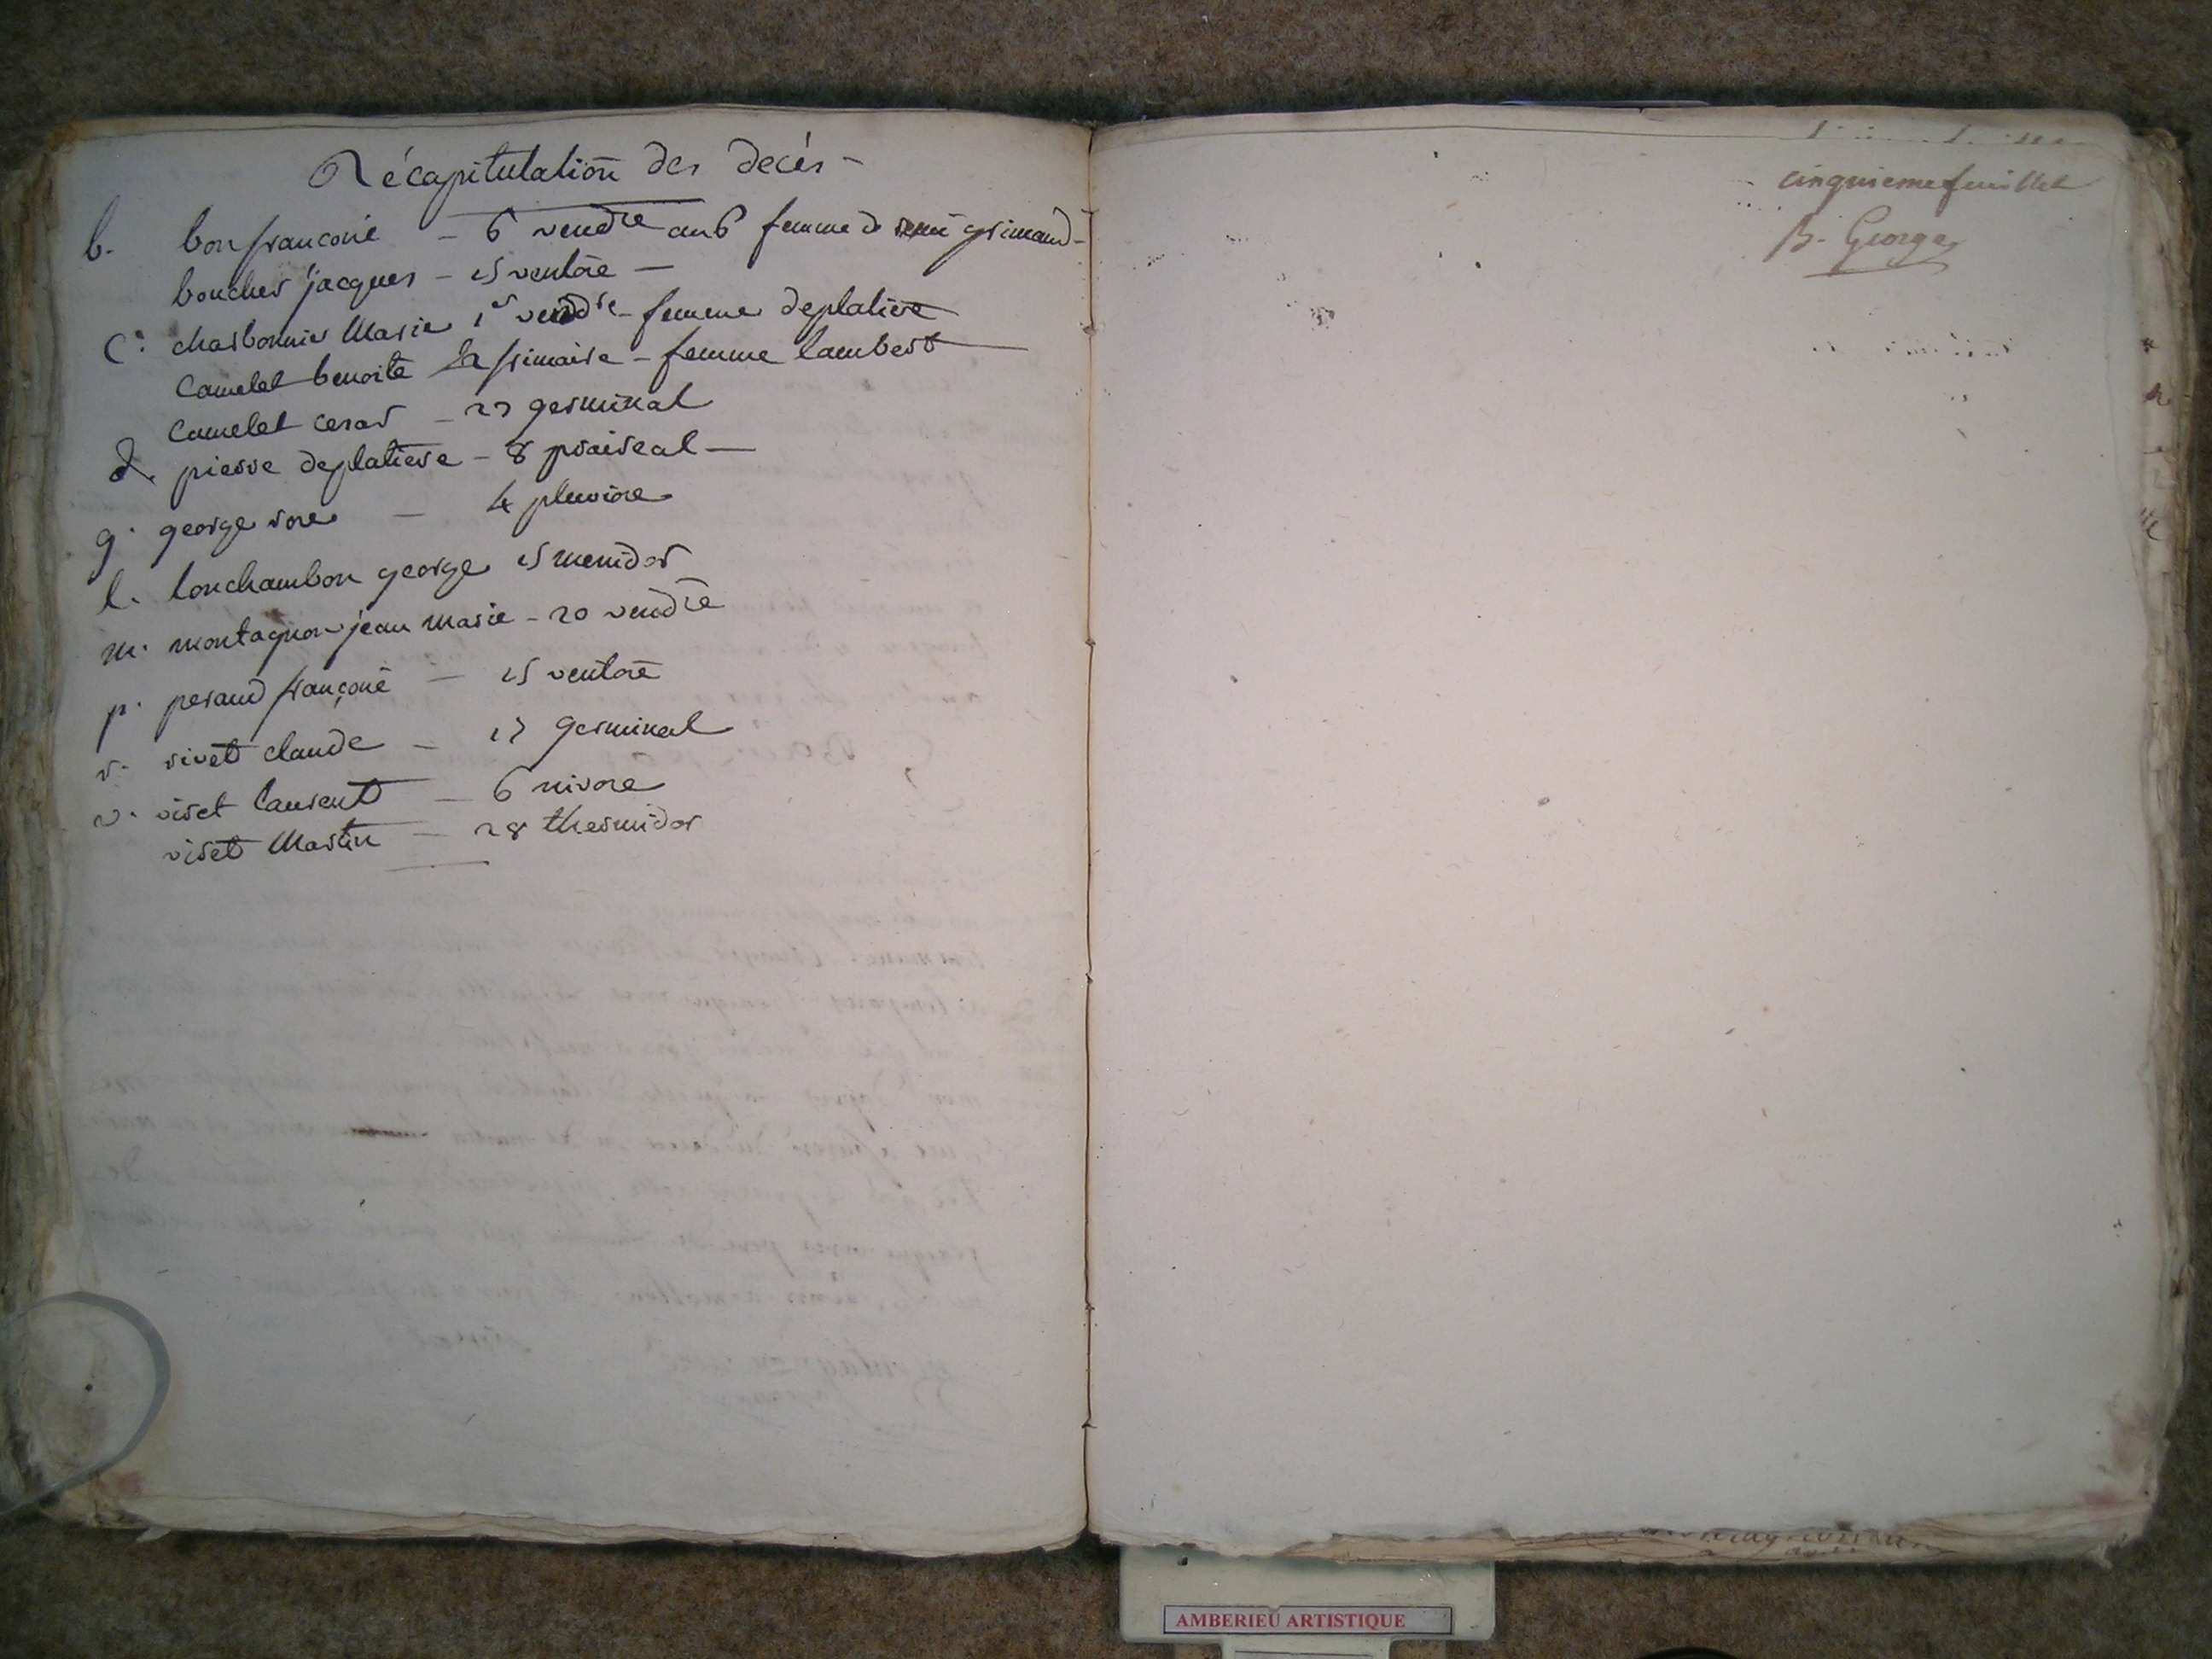 Récapitulation des decés -
b. bon francoise - 6 vend^re an 6 femme de grimaud -
boucher jacques - 15 ventôse -
C. charbonnier Marie 1er vend^re - femme deplatiere
Camelet benoite frimaire - femme lambert
Camelet cesar - 27 germinal
d. pierre deplatiere - 8 prairial -
g. george rose - 4 pluviose
l. lonchambon george 15 messidor
m. montagnon jean marie - 20 vend^re
p. peraud françoise - 15 ventose
r. rivet claude - 17 germinal
v. viret laurent - 6 nivose
viret Martin - 28 thermidor
cinquieme feuillet
B. George
AMBERIEU ARTISTIQUE